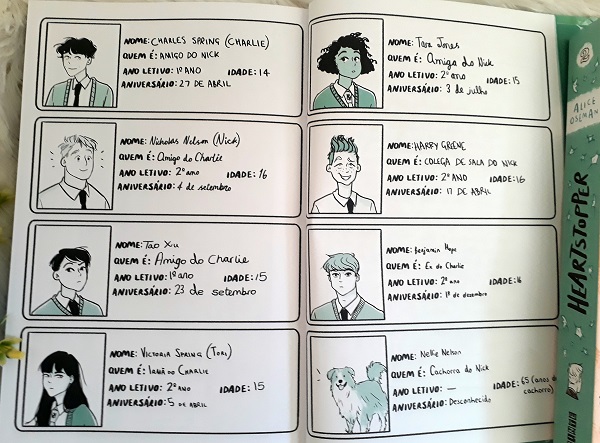 NOME: CHARLES SPRING (CHARLIE)
QUEM É: AMIGO DO NICK
ANO LETIVO: 1º ANO IDADE: 14
ANIVERSÁRIO: 27 DE ABRIL
NOME: Nicholas Nelson (Nick)
QUEM É: Amigo do Charlie
ANO LETIVO: 2º ano IDADE: 16
ANIVERSÁRIO: 4 de setembro
NOME: Tao Xu
QUEM É: Amigo do Charlie
ANO LETIVO: 1º ano IDADE: 15
ANIVERSÁRIO: 23 de setembro
NOME: VICTORIA SPRING (TORI)
QUEM É: IRMÃ DO CHARLIE
ANO LETIVO: 2º ANO IDADE: 15
ANIVERSÁRIO: 5 DE ABRIL
NOME: Tara Jones
QUEM É: Amiga do Nick
ANO LETIVO: 2º ano IDADE: 15
ANIVERSÁRIO: 3 de julho
NOME: HARRY GREENE
QUEM É: COLEGA DE SALA DO NICK
ANO LETIVO: 2º ANO IDADE: 16
ANIVERSÁRIO: 17 DE ABRIL
NOME: Benjamin Hope
QUEM É: Ex do Charlie
ANO LETIVO: 2º ano IDADE: 16
ANIVERSÁRIO: 1º de dezembro
NOME: Nellie Nelson
QUEM É: Cachorra do Nick
ANO LETIVO: — IDADE: 65 (anos de
cachorro)
ANIVERSÁRIO: Desconhecido
ALICE
OSEMAN
HEARTSTOPPER